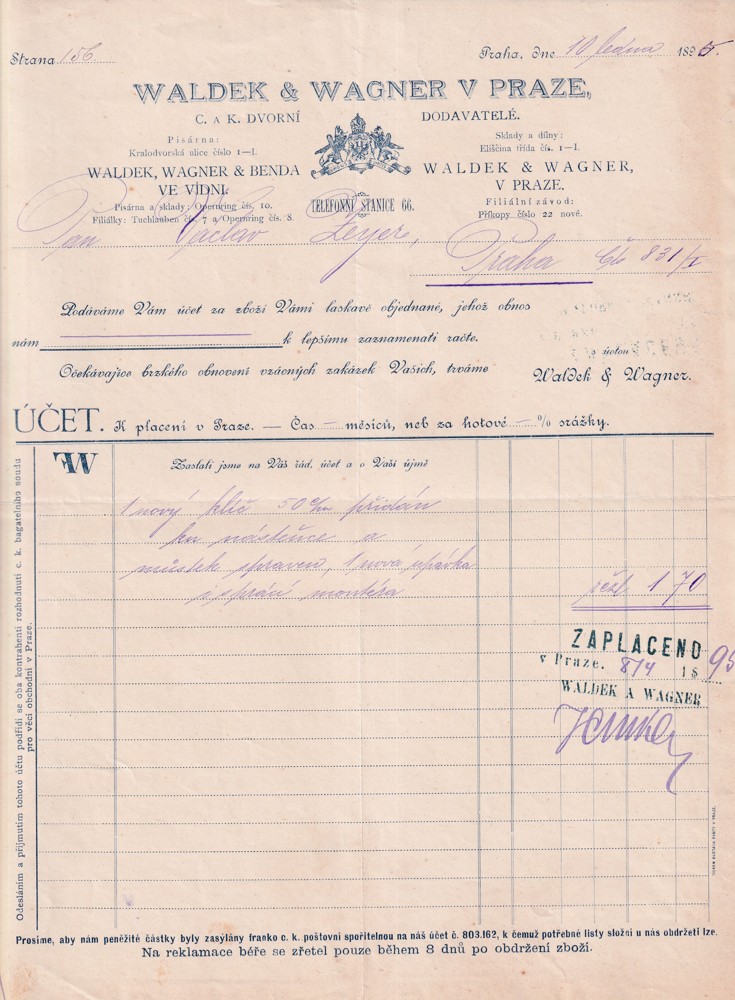 Strana 156
Praha, dne 10 ledna 1895
WALDEK & WAGNER V PRAZE,
C. A K. DVORNÍ DODAVATELÉ.
Písárna:
Kralodvorská ulice číslo 1—I.
WALDEK, WAGNER & BENDA
VE VÍDNI.
Písárna a sklady: Opernring čís. 10.
Filiálky: Tuchlauben čís. 7 a Opernring čís. 8.
TELEFONNÍ STANICE 66.
Sklady a dílny:
Eliščina třída čís. 1—I.
WALDEK & WAGNER,
V PRAZE.
Filiální závod:
Příkopy číslo 22 nové.
Pan Václav
Praha Čís 831/I
Podáváme Vám účet za zboží Vámi laskavě objednané, jehož obnos
nám k lepšímu zaznamenati račte.
Očekávajíce brzkého obnovení vzácných zakázek Vašich, trváme
s úctou
Waldek & Wagner.
ÚČET. K placení v Praze. — Čas — měsíců, neb za hotové — % srážky.
WW
Zaslali jsme na Váš řád, účet a o Vaší újmě
1 nový klíč 50 c/m přidán
ku nástěnce a
můstek spraven, 1 nová
montéra 1 70
ZAPLACENO
v Praze. 8/4 1895
WALDEK A WAGNER
Odesláním a přijmutím tohoto účtu podřídí se oba kontrahenti rozhodnutí c. k. bagatelního soudu
pro věci obchodní v Praze.
Prosíme, aby nám peněžité částky byly zasýlány franko c. k. poštovní spořitelnou na náš účet č. 803.162, k čemuž potřebné listy složní u nás obdrželi lze.
Na reklamace béře se zřetel pouze během 8 dnů po obdržení zboží.